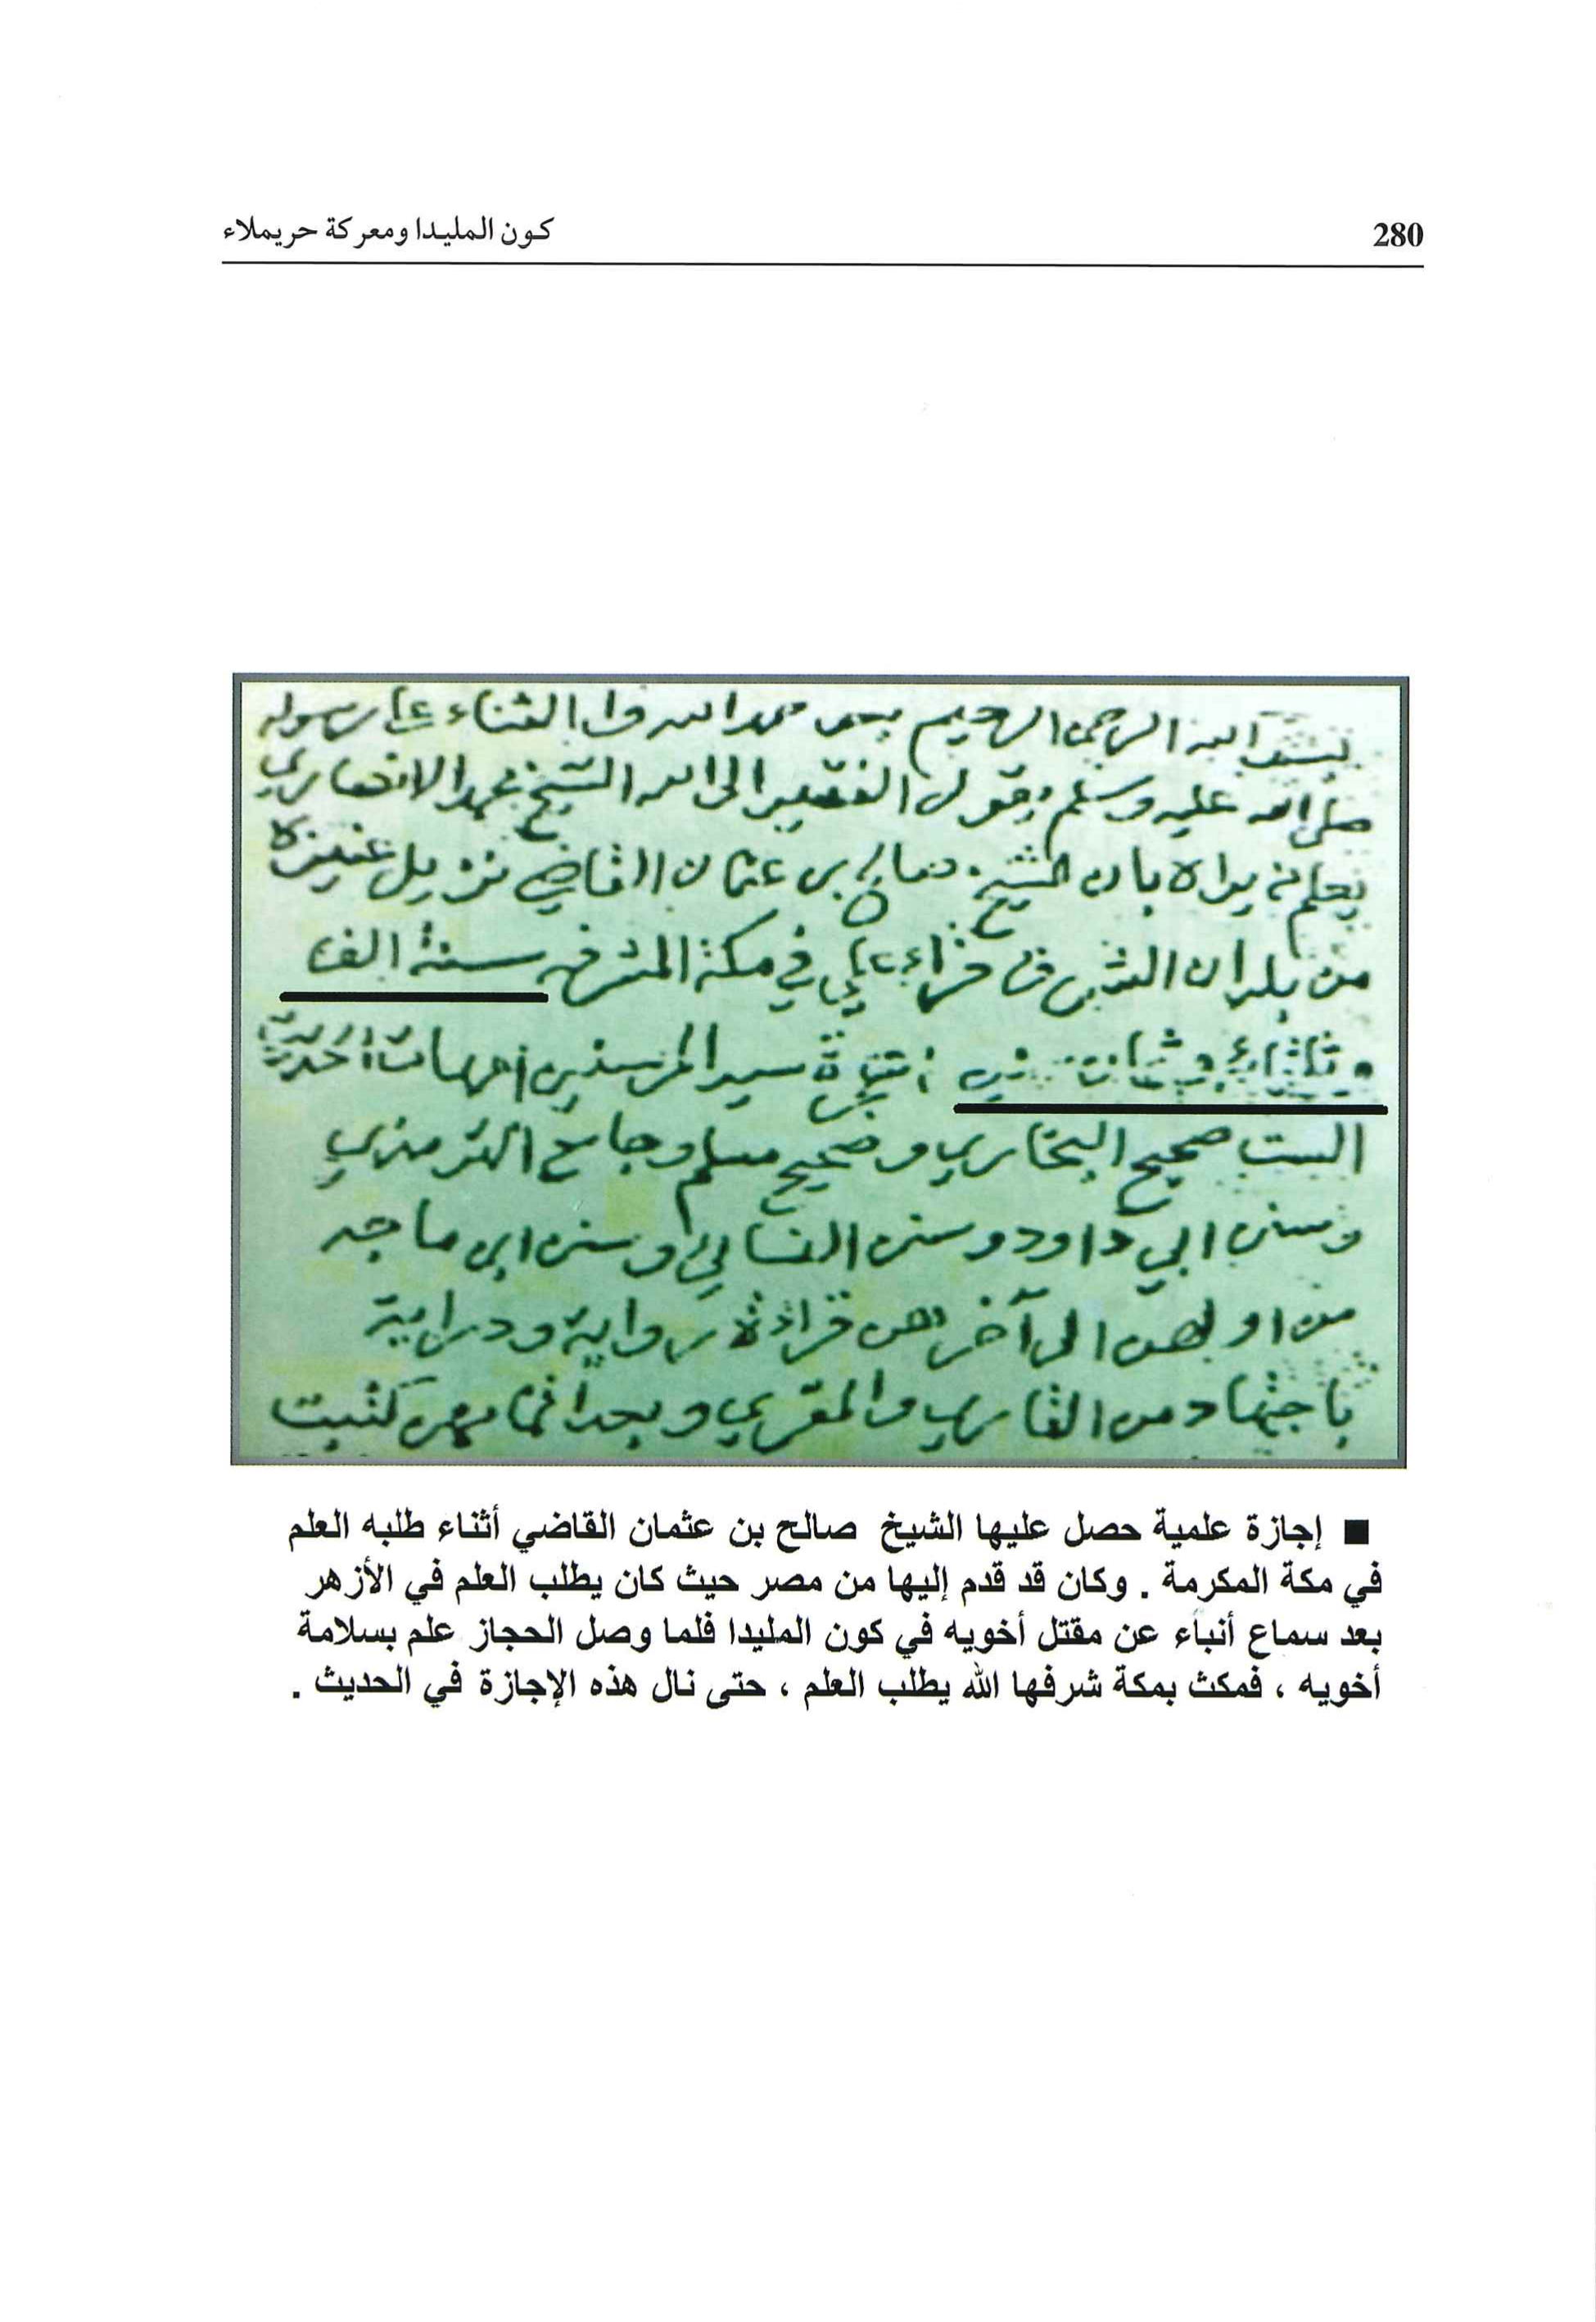 280
كون المليدا ومعركة حريملاء
بسم الله الرحمن الرحيم بعد حمد الله والثناء على رسوله
صلى الله عليه وسلم يقول الفقير الى الله الشيخ محمد الانصاري
يعلم من يراه بان الشيخ صالح بن عثمان القاضي نزيل عنيزة
من بلدان الشرق قراء علي في مكة المشرفه سنة الف
وثلاثماء سيد المرسلين امهات
الست صحيح البخاري وصحيح مسلم وجامع الترمذي
وسنن ابي داود وسنن النسائي وسنن ابن ماجه
من اولهن الى آخرهن قراءة رواية ودراية
باجتهاد من القاري والمقري وبعد كتبت
■ إجازة علمية حصل عليها الشيخ صالح بن عثمان القاضي أثناء طلبه العلم
في مكة المكرمة . وكان قد قدم إليها من مصر حيث كان يطلب العلم في الأزهر
بعد سماع أنباء عن مقتل أخويه في كون المليدا فلما وصل الحجاز علم بسلامة
أخويه ، فمكث بمكة شرفها الله يطلب العلم ، حتى نال هذه الإجازة في الحديث .